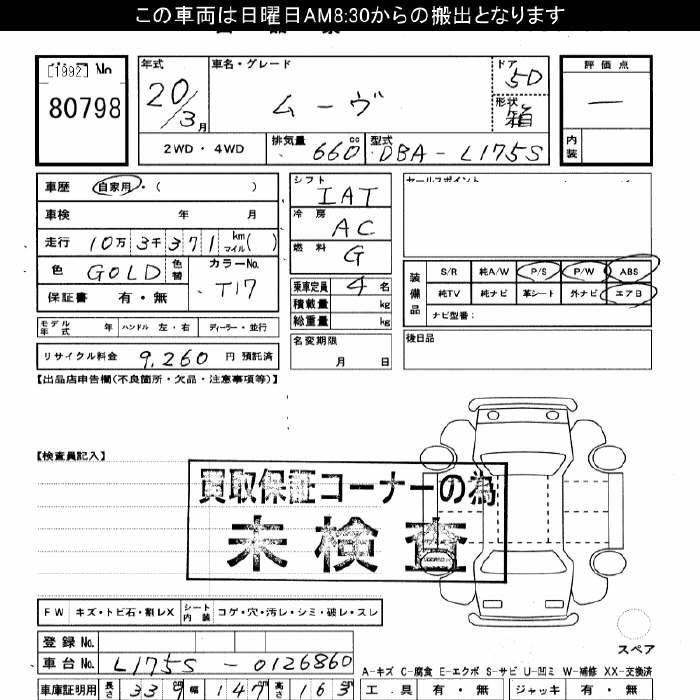 この車両は日曜日AM8:30からの搬出となります
[1992] No
80798
年式
20/3月
車名・グレード
ムーヴ
ドア
5D
形状
箱
評価点
—
内装
2WD・4WD
排気量 660 cc
型式 DBA-L175S
車歴 自家用・( )
車検 年 月
走行 10万3千371 km マイル( )
色 GOLD 色替
カラーNo. T17
保証書 有・無
シフト IAT
冷房 AC
燃料 G
乗車定員 4 名
積載量 kg
総重量 kg
名変期限
月 日
セールスポイント
装備品
S/R 純A/W P/S P/W ABS
純TV 純ナビ 革シート 外ナビ エアB
ナビ型番:
後日品
モデル年式 年 ハンドル 左・右 ディーラー・並行
リサイクル料金 9,260 円 預託済
【出品店申告欄(不良箇所・欠品・注意事項等)】
【検査員記入】
買取保証コーナーの為
未検査
FW キズ・トビ石・割レX シート内装 コゲ・穴・汚レ・シミ・破レ・スレ
スペア
登録No.
車台No. L175S-0126860
A-キズ C-腐食 E-エクボ S-サビ U-凹ミ W-補修 XX-交換済
車庫証明用 長さ 339 幅 147 高さ 163
工具 有・無 ジャッキ 有・無